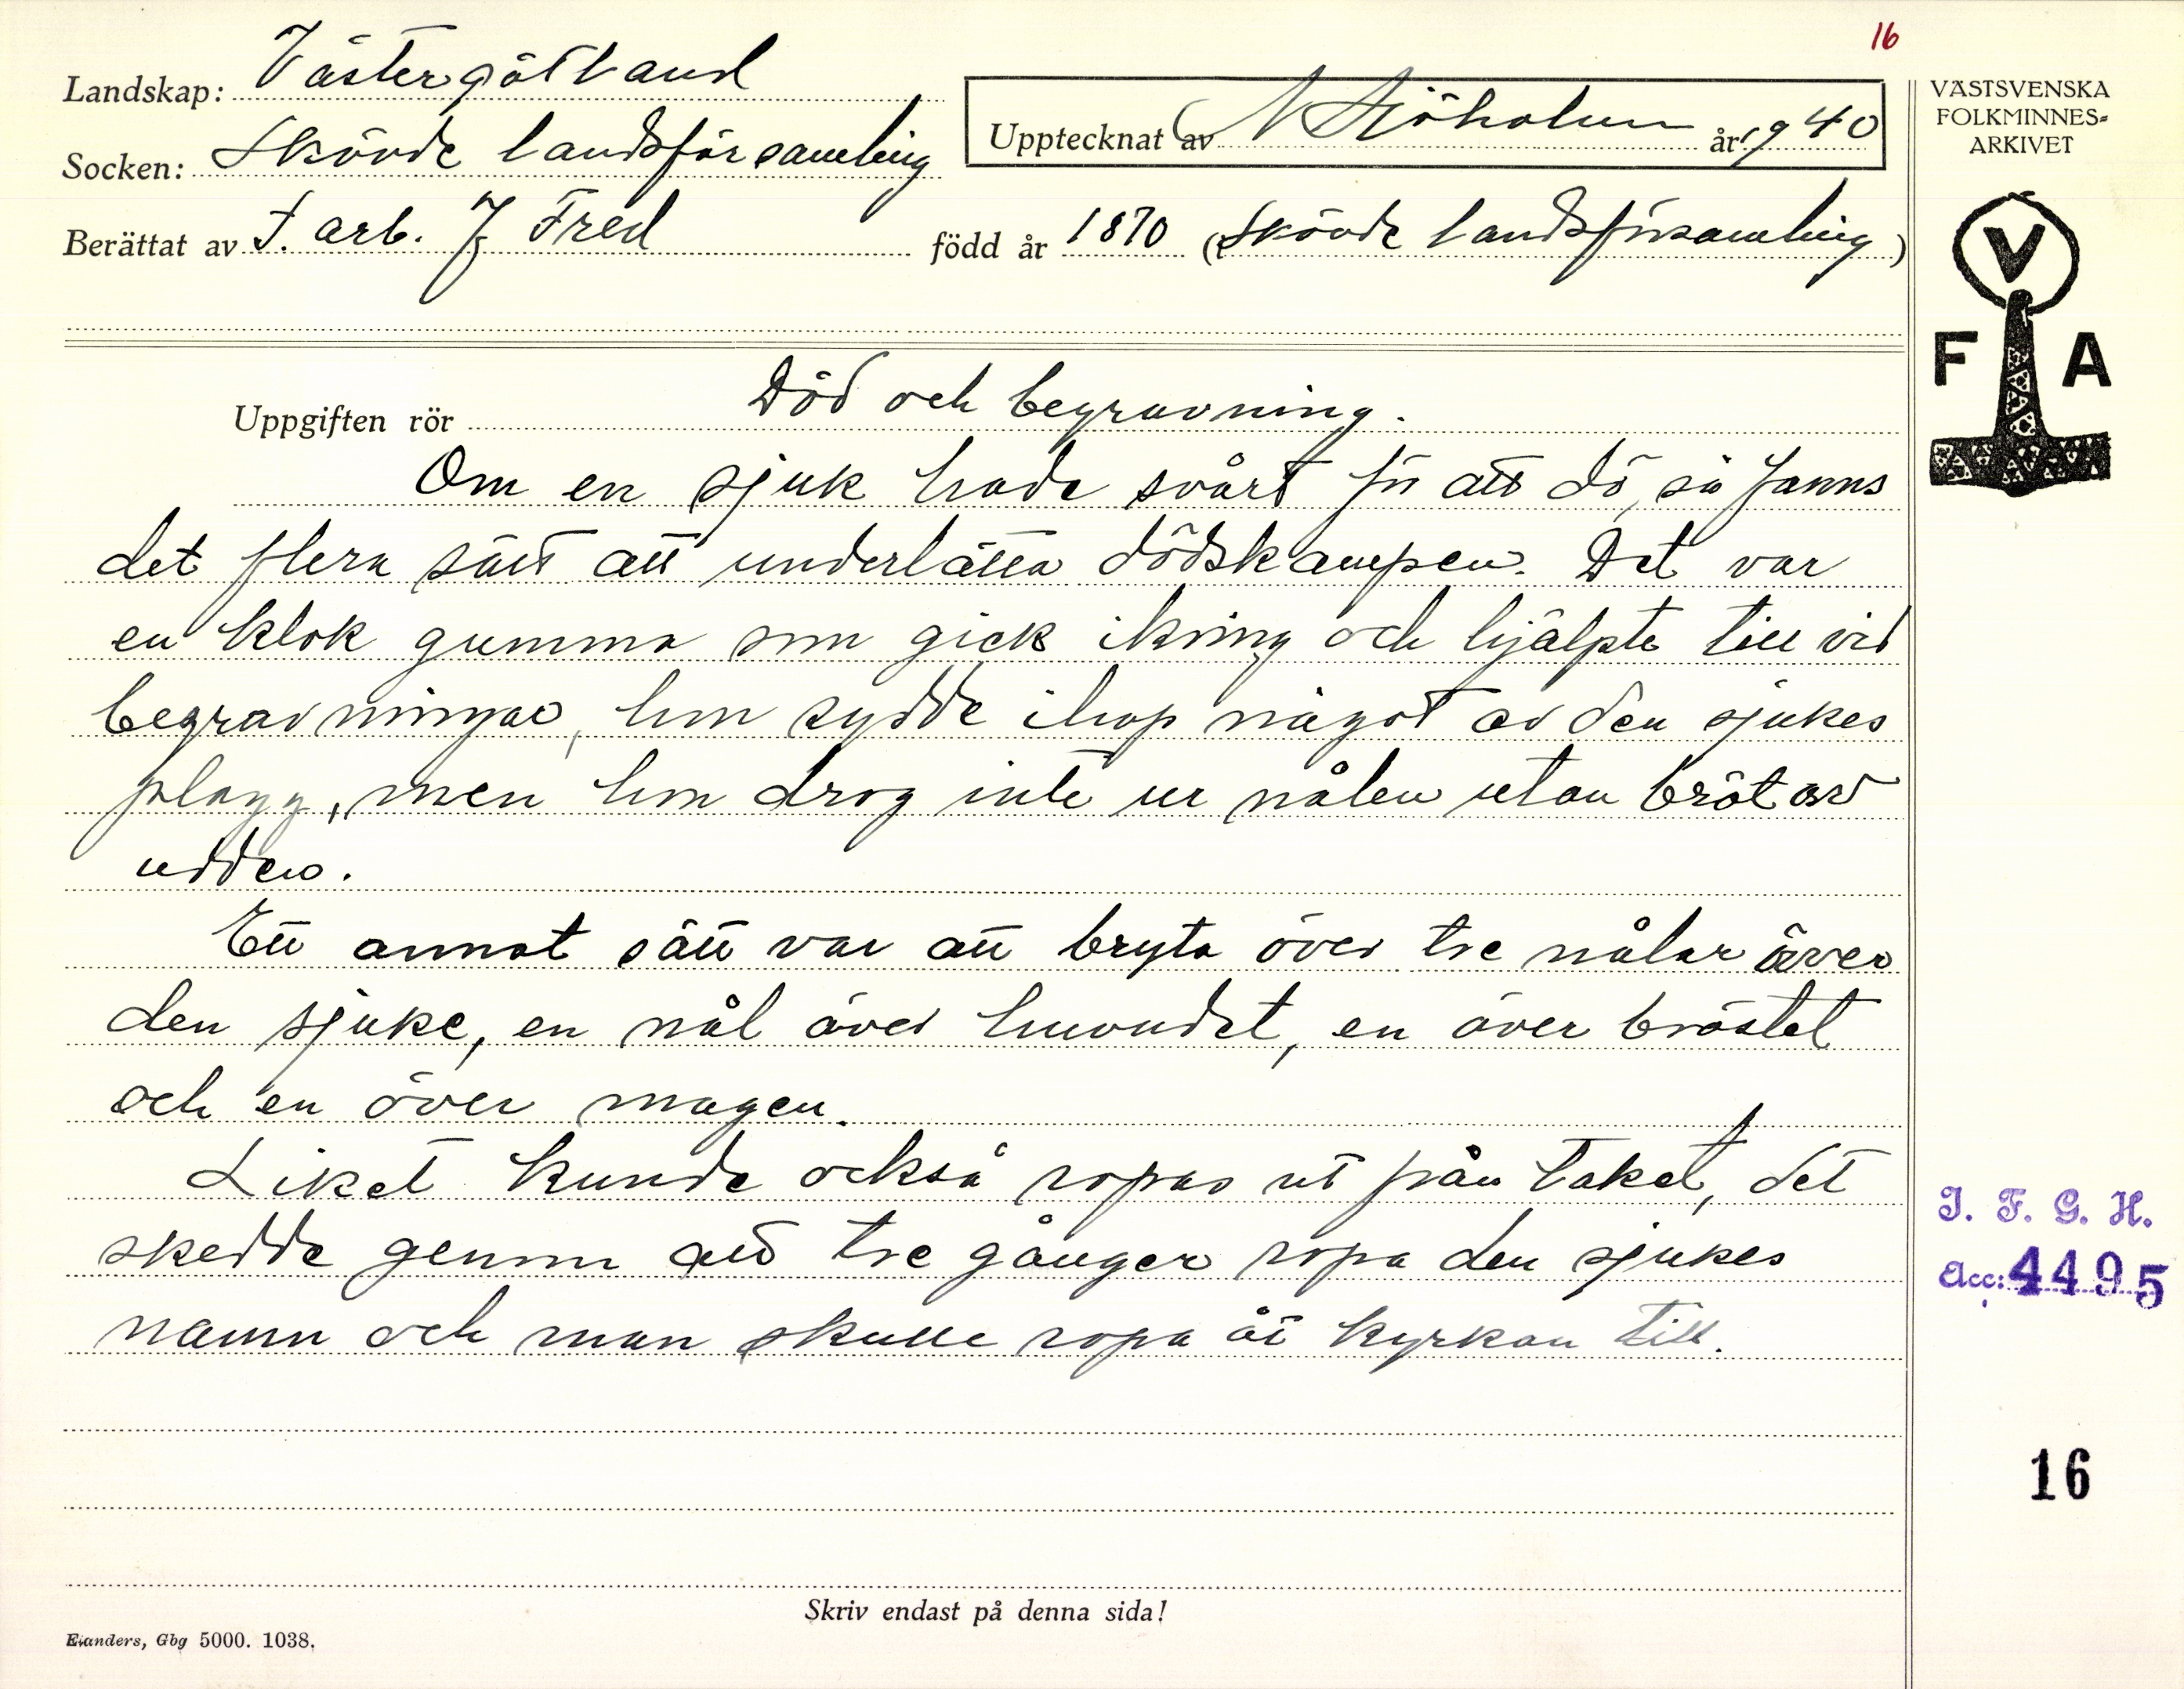 16
Landskap: Västergötland
Socken: Skövde landsförsamling
Upptecknat av N Sjöholm år 1940
Berättat av f. arb. J Fred född år 1870 (Skövde landsförsamling)
VÄSTSVENSKA
FOLKMINNES=
ARKIVET
V
F A
Uppgiften rör Död och begravning.
Om en sjuk hade svårt för att dö, så fanns
det flera sätt att underlätta dödskampen. Det var
en klok gumma som gick ikring och hjälpte till vid
begravningar, hon sydde ihop något av den sjukes
plagg, men hon drog inte ur nålen utan bröt av
udden.
Ett annat sätt var att bryta över tre nålar över
den sjuke, en nål över huvudet, en över bröstet
och en över magen.
Liket kunde också ropas ut från taket, det
skedde genom att tre gånger ropa den sjukes
namn och man skulle ropa åt kyrkan till.
I. F. G. H.
Acc: 4495
16
Skriv endast på denna sida!
Elanders, Gbg 5000. 1038.